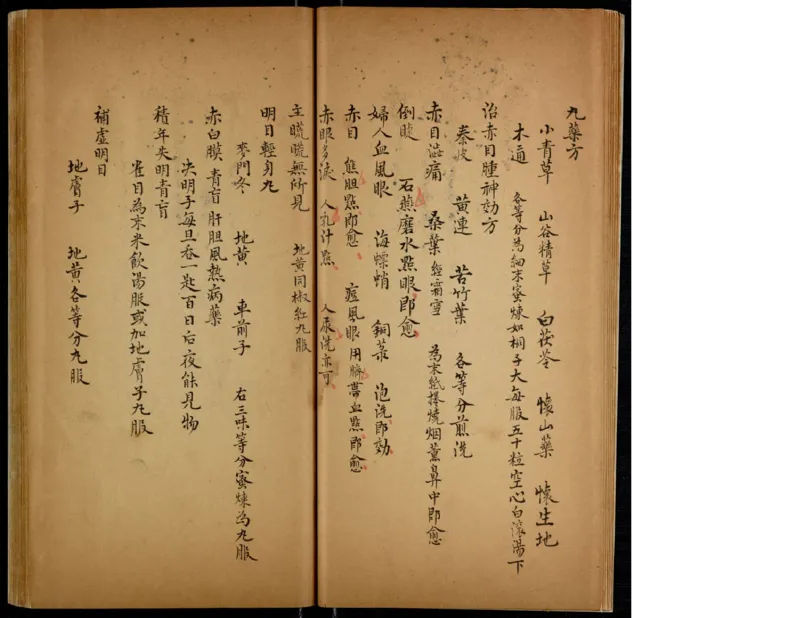 丸藥方
小青草 山谷精草 白茯苓 懷山藥 懷生地
木通 各等分為細末蜜煉如桐子大每服五十粒空心白滾湯下
治赤目腫神効方
秦皮 黃連 苦竹葉 各等分煎洗
赤目澁痛 桑葉 經霜雪 為末紙捲燒烟薰鼻中即愈
倒睫 石燕磨水點眼即愈
婦人血風眼 海螵蛸 銅菉 泡洗即効
赤目 熊胆點即愈 痘風眼用臍帶血點即愈
赤眼多淚 人乳汁點 人尿洗亦可
主䀮䀮無所見 地黃同椒紅丸服
明目輕身丸
麥門冬 地黃 車前子 右三味等分蜜煉為丸服
赤白膜青盲肝胆風熱病藥
决明子每旦吞一匙百日后夜能見物
積年失明青盲
雀目為末米飲湯服或加地膚子丸服
補虛明目
地膚子 地黃各等分丸服